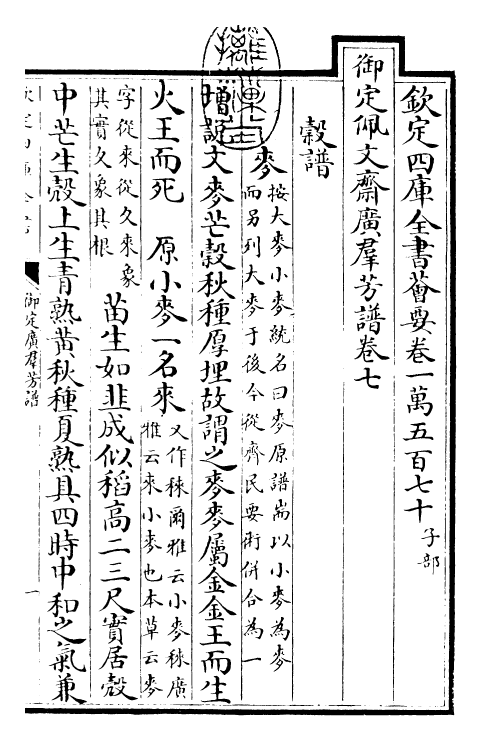 欽定四庫全書薈要卷一萬五百七十 子部
御定佩文齋廣羣芳譜卷七
穀譜
麥 按大麥小麥統名曰麥原譜耑以小麥為麥
而另列大麥于後今從齊民要術併合為一
增說文麥芒穀秋種厚埋故謂之麥麥屬金金王而生
火王而死 原小麥一名來 又作秾爾雅云小麥秾廣
雅云來小麥也本草云麥
字從來從夂來象
其實夂象其根
苗生如韭成似稻高二三尺實居殼
中芒生殼上生青熟黃秋種夏熟具四時中和之氣兼
御定廣羣芳譜
一